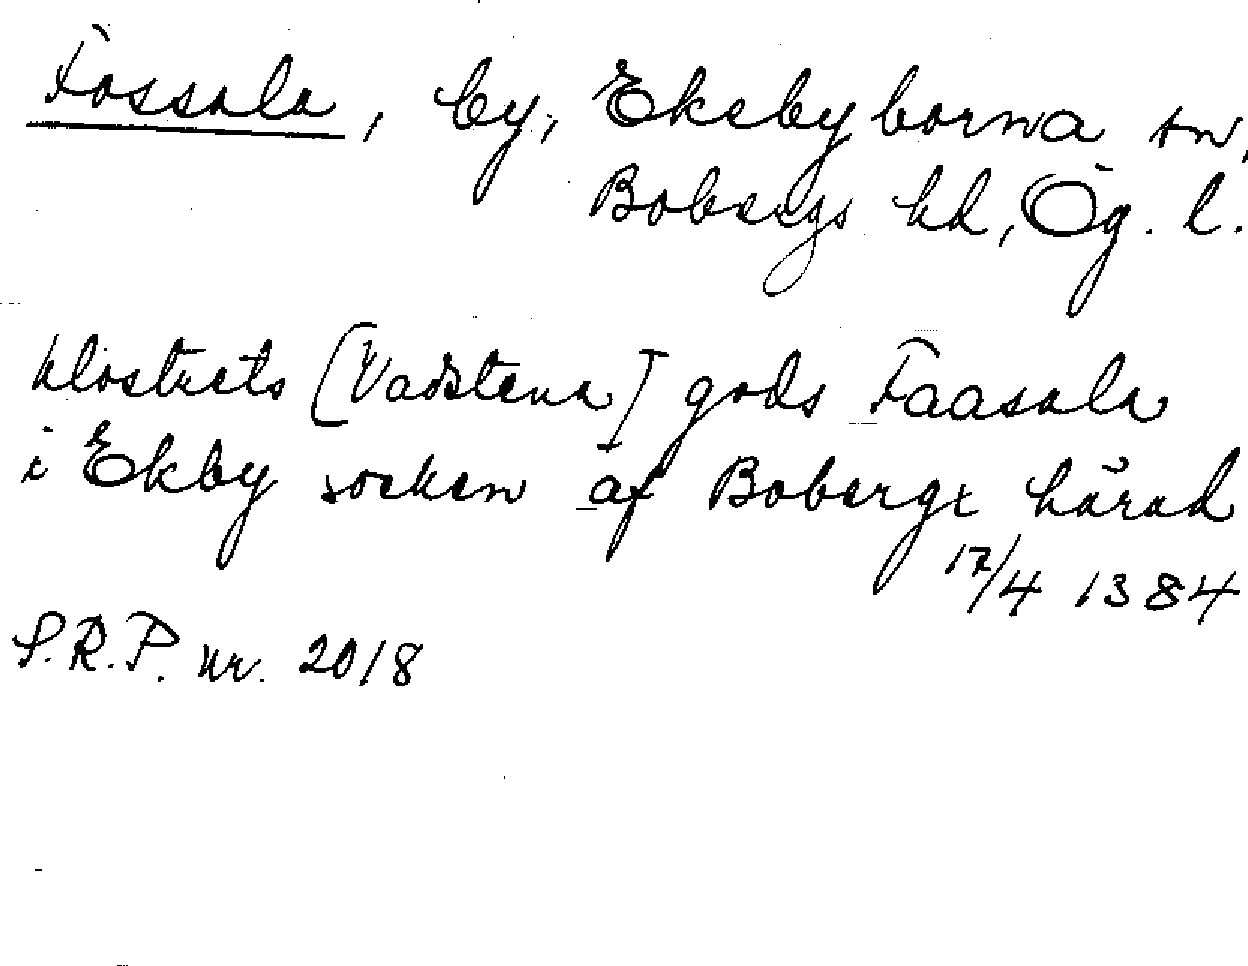 Fossala, by, Ekebyborna sn,
Bobergs hd, Ög. l.
klostrets [Vadstena] gods Faasala
i Ekby socken af Bobergx härad
17/4 1384
S.R.P. nr. 2018